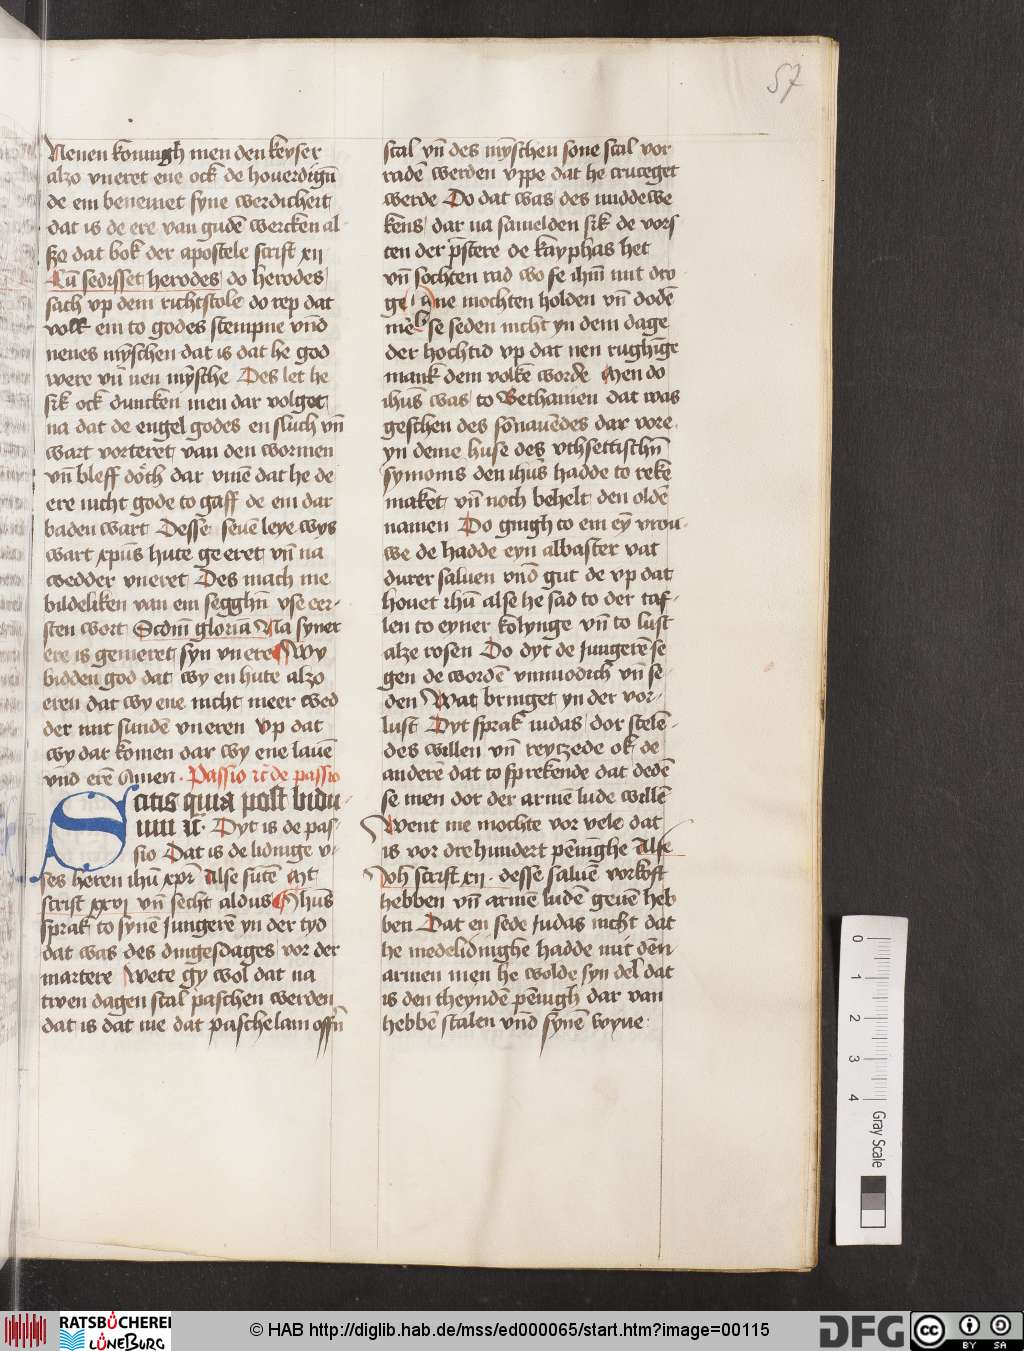 57
Nenen konnigh men den keyser
alzo vneret ene ock de houerdigē
de em benemet syne werdicheit
dat is de ere van gudē wercken al
szo dat bok der apostele scrift xii
Cū sedisset herodes do herodes
sach vp dem richtstole do rep dat
volk em to godes stempne vn̄d
nenes mȳschen dat is dat he god
were vn̄ nen mȳsche Des let he
sik ock duncken men dar volget
na dat de engel godes en sluch vn̄
wart vorteret van den wormen
vn̄ bleff doch dar vmē dat he de
ere nicht gode to gaff de em dar
baden wart Desse seuē leye wys
wart xpūs hute ge eret vn̄ na
wedder vneret Des mach me
bildeliken van em segghn̄ vse eer-
sten wort Scdm̄ gloria Na syner
ere is gemeret syn vn ere Wy
bidden god dat wy en hute alzo
eren dat wy ene nicht meer wed
der mit sundē vneren Vp dat
wy dar komen dar wy ene lauē
vnd erē Amen. Passio de passio
Scitis quia post bidu-
um Dyt is de pas-
sio Dat is de lidinge v-
ses heren ihū xpī Alse sutē Mt
scrift xxvi vn̄ secht aldus Ihūs
sprak to synē Jungerē yn der tyd
dat was des dingesdages vor der
martere Wete gy wol dat na
twen dagen scal paschen werden
dat is dat me dat paschelam offn̄
scal vn̄ des mȳschen sone scal vor
radē werden vppe dat he cruceget
werde Do dat was des middewe
kens dar na samelden sik de vors
ten der p̄stere de kayphas het
vn̄ sochten rad wo se ihm̄ mit dro-
ge ene mochten holden vn̄ dodē
mē se seden nicht yn dem dage
der hochtid vp dat nen rughīge
mank dem volke worde Men do
ihūs was to Bethanien dat was
geschen des sōnauēdes dar vore
yn deme huse des vthsettischn̄
symonis den ihūs hadde to rekē
maket vn̄ noch behelt den oldē
namen Do gingh to em eȳ vrou-
we de hadde eyn albaster vat
durer saluen vn̄d gut de vp dat
houet ihū alse he sad to der taf-
len to eyner kolynge vn̄ to lust
alze rosen Do dyt de Jungerē se
gen de wordē vnmodich vn̄ se-
den Wat bringet yn der vor-
lust Dyt sprak iudas dor stelē-
des willen vn̄ reytzede ok de
anderē dat to sprekende dat dedē
se men dor der armē lude willē
Went me mochte vor vele dat
is vor drehundert pēninghe Alse
Joh scrift xii. desse saluē vorkoft
hebben vn̄ armē ludē geuē heb
ben Dat en sede Judas nicht dat
he medelidinghe hadde mit dēn
armen men he wolde syn del dat
is den theyndē pēnigh dar van
hebbē stalen vn̄d synē wyue.
0
1
2
3
4
Gray Scale
RATSBÜCHEREI
LÜNEBURG
© HAB http://diglib.hab.de/mss/ed000065/start.htm?image=00115
DFG
cc
BY SA